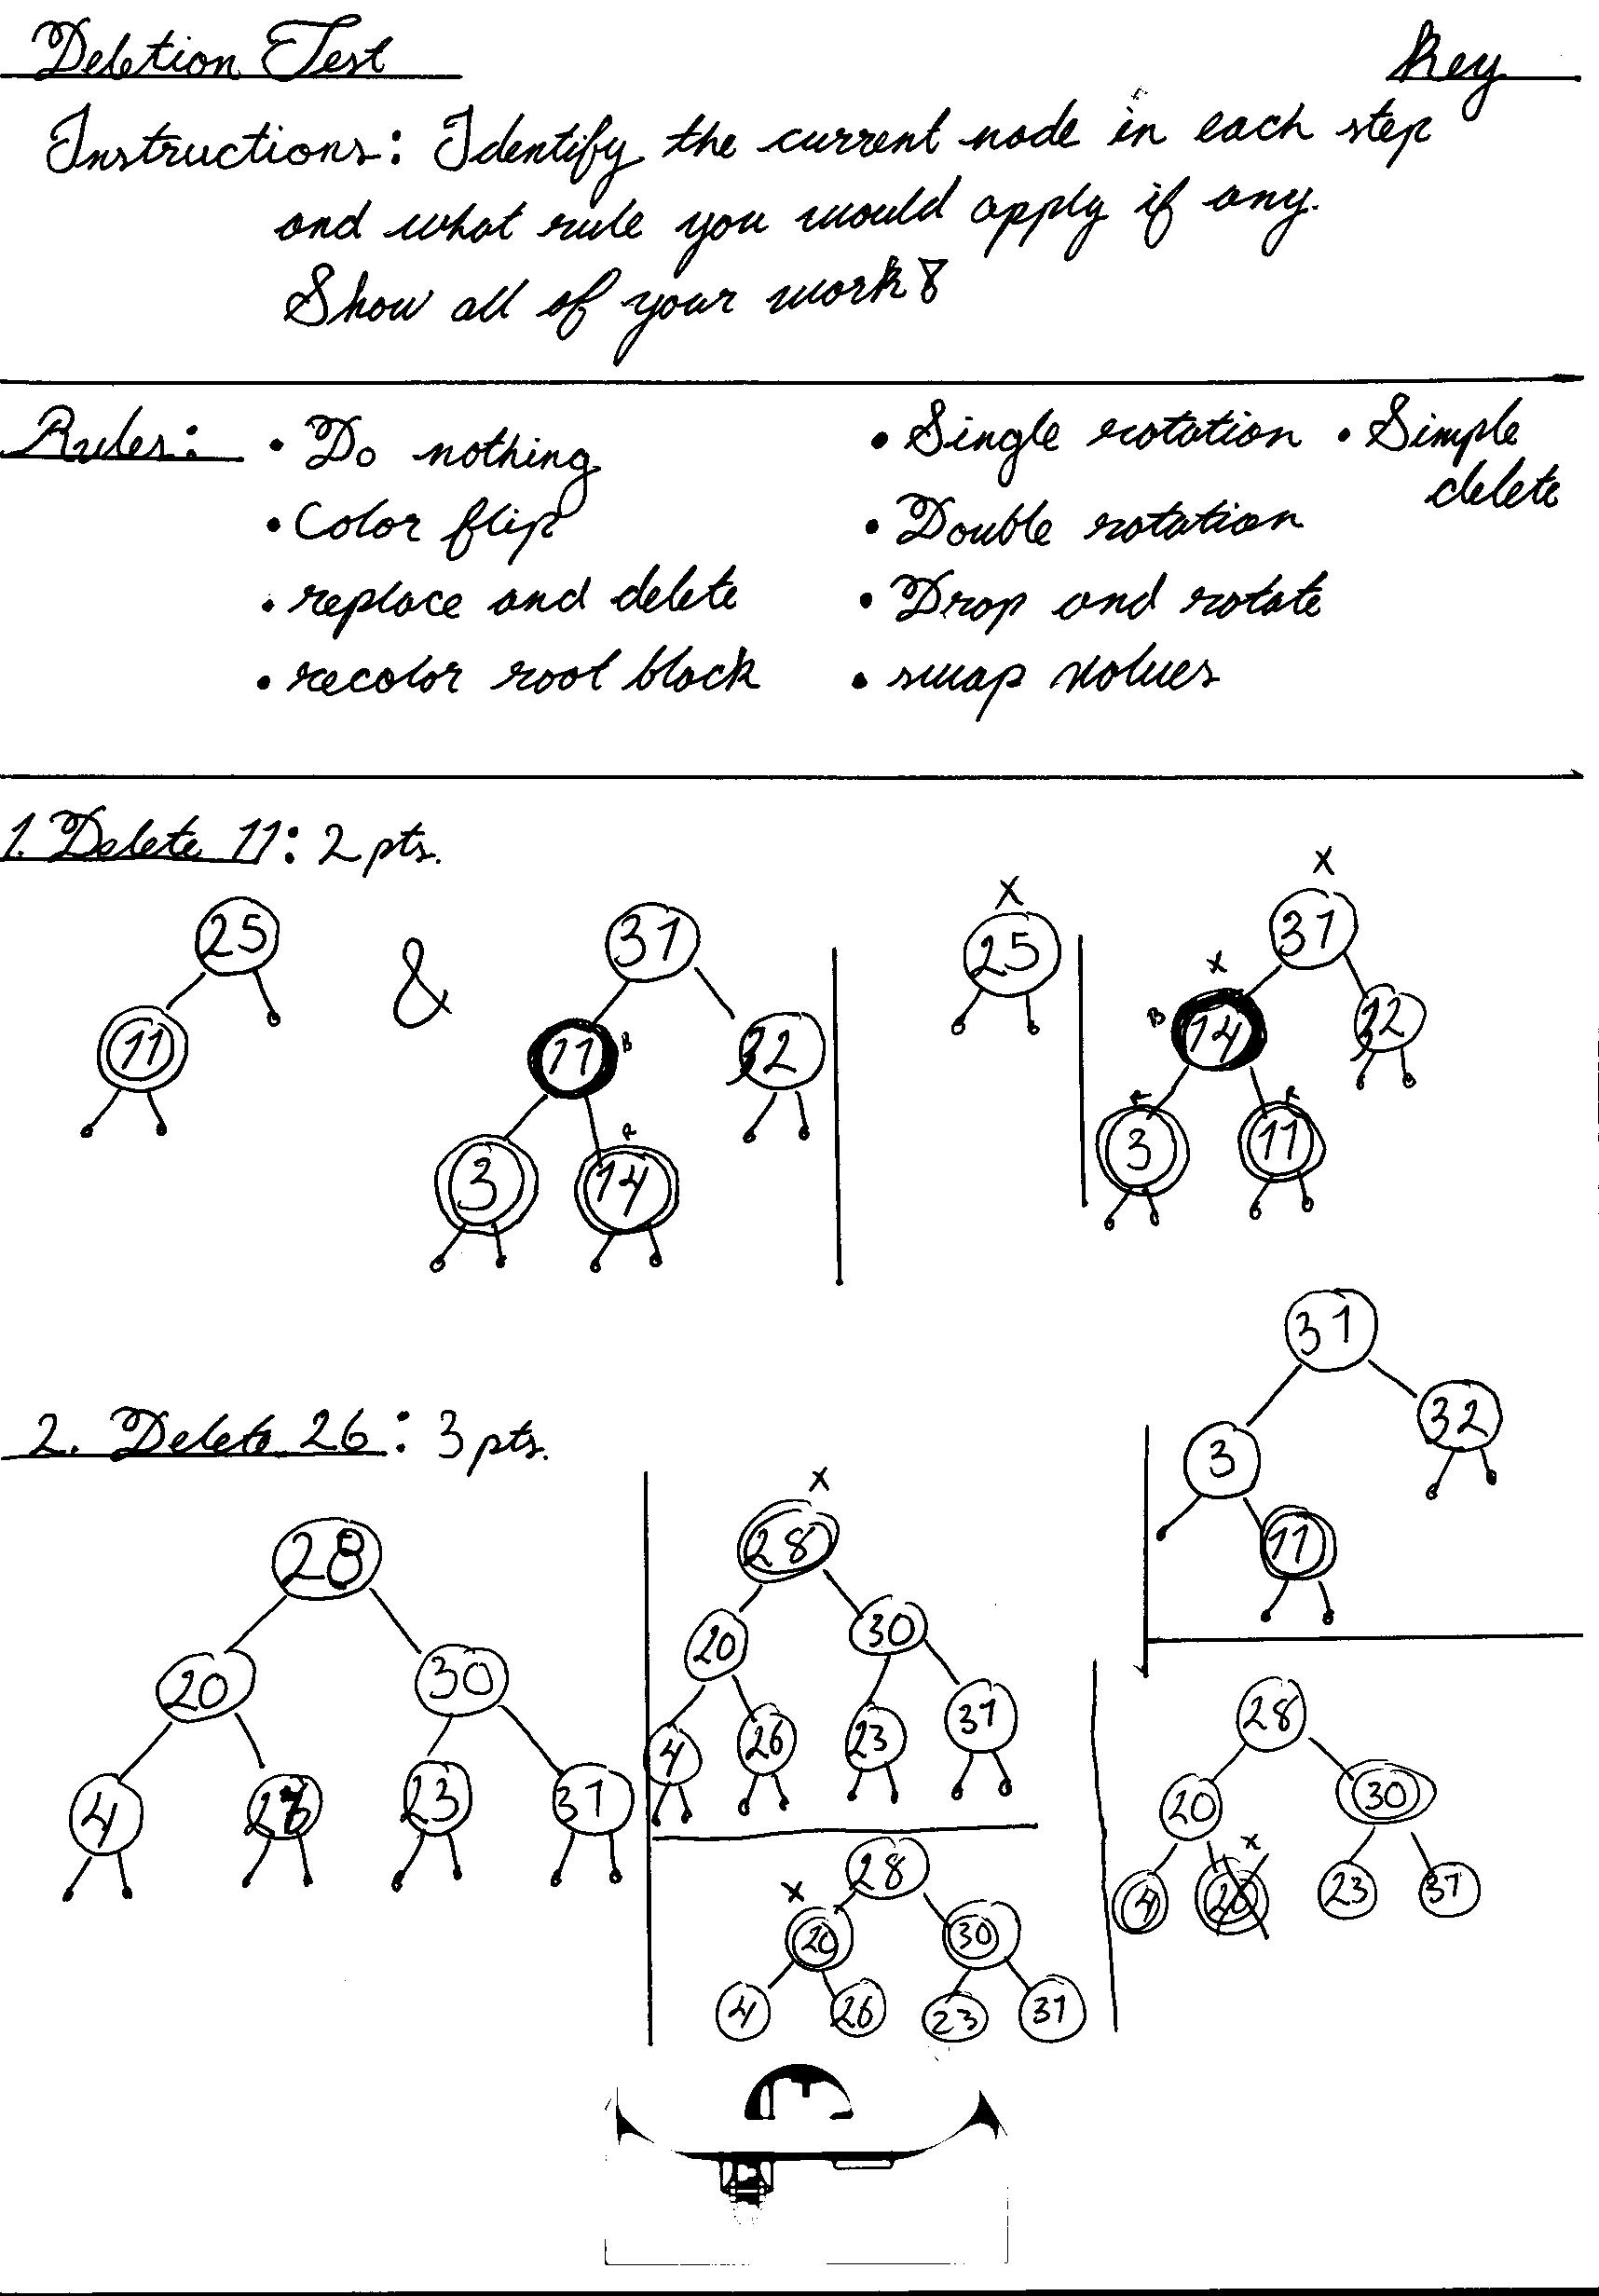 Deletion Test Key
Instructions: Identify the current node in each step
and what rule you would apply if any.
Show all of your work!
Rules:
• Do nothing
• Color flip
• replace and delete
• recolor root black
• Single rotation • Simple
delete
• Double rotation
• Drop and rotate
• swap values
1. Delete 11: 2 pts.
25
11
&
31
11 B
32
R
3
14
X
25
X
31
X
B 14
32
R R
3 11
31
3 32
11
2. Delete 26: 3 pts.
28
20 30
4 23 37
X
28
20 30
4 26 23 37
28
X
20 30
4 26 23 37
28
20 30
X
4 23 37